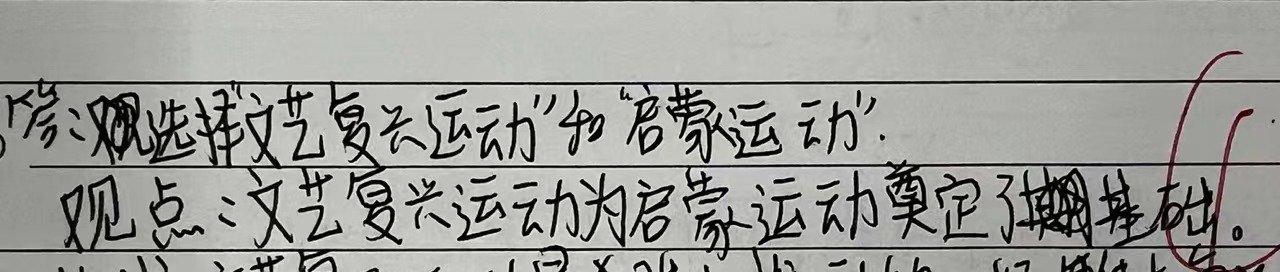 答：选择“文艺复兴运动”和“启蒙运动”.
观点：文艺复兴运动为启蒙运动奠定了基础。